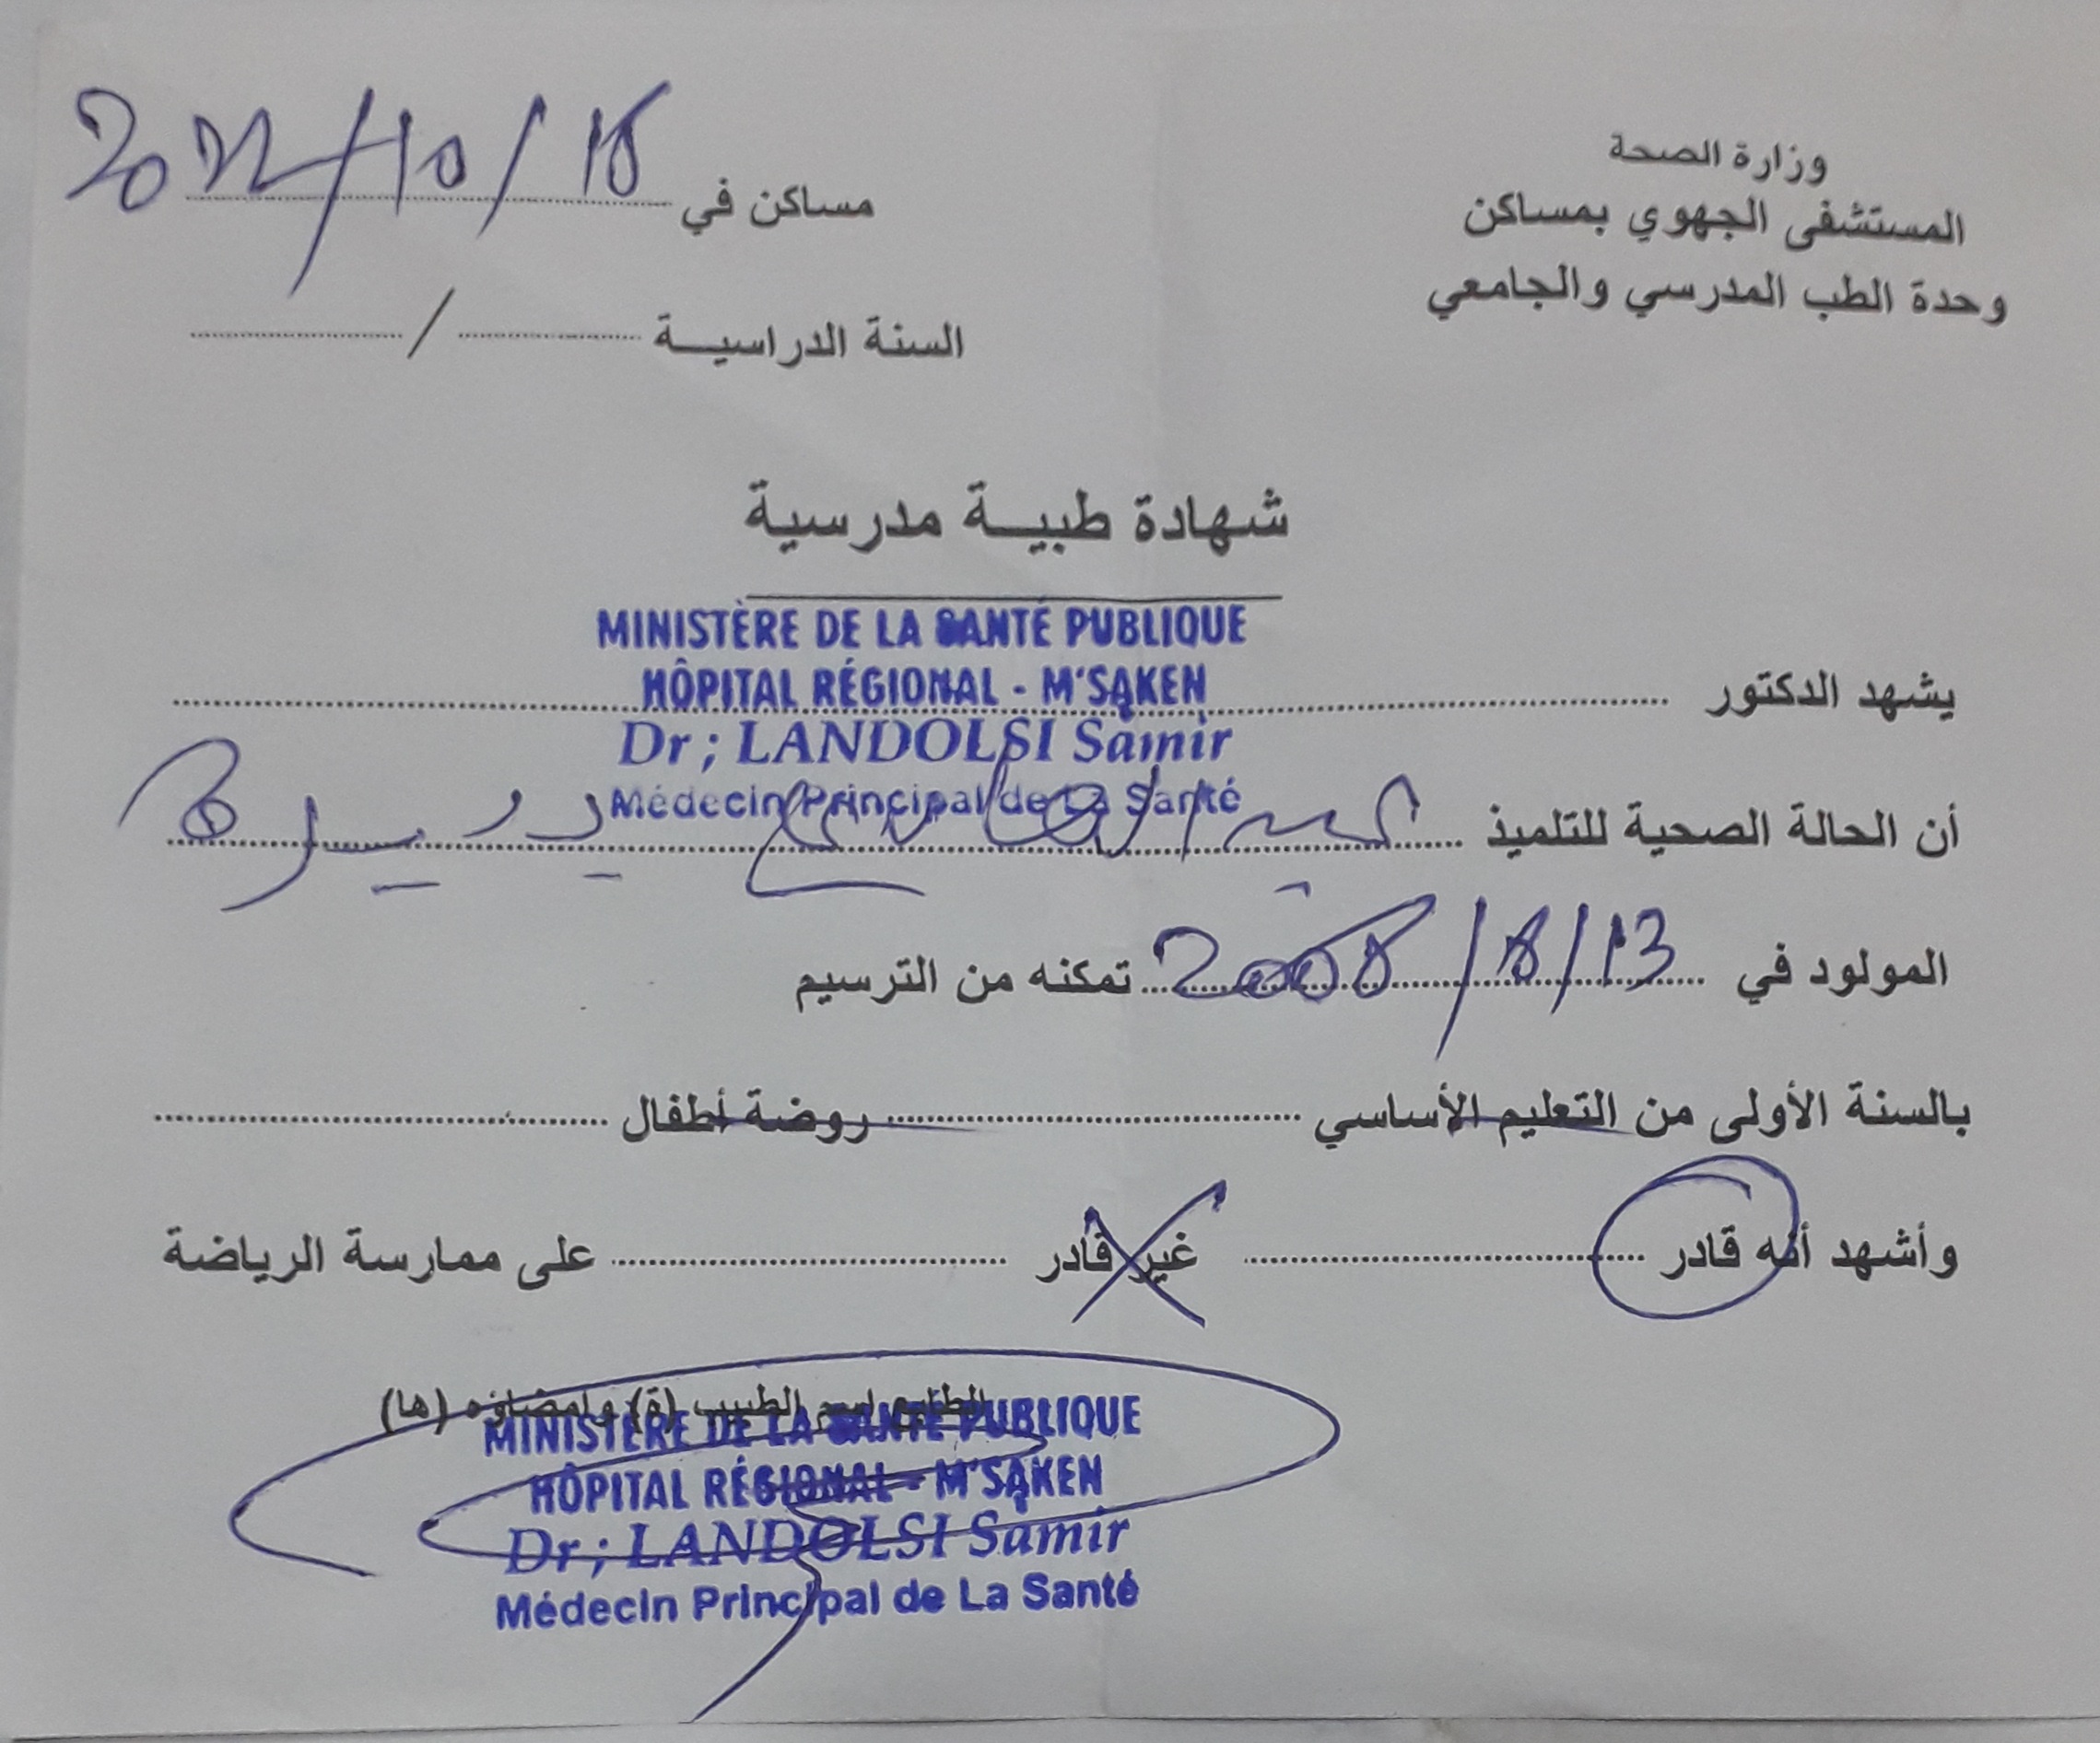 وزارة الصحة
المستشفى الجهوي بمساكن
وحدة الطب المدرسي والجامعي
مساكن في 18/10/2022
السنة الدراسيــة ............ / ............
شهادة طبيــة مدرسية
MINISTÈRE DE LA SANTÉ PUBLIQUE
HÔPITAL RÉGIONAL - M'SAKEN
يشهد الدكتور
Dr ; LANDOLSI Samir
Médecin Principal de La Santé
أن الحالة الصحية للتلميذ
المولود في 13/8/2008 تمكنه من الترسيم
بالسنة الأولى من التعليم الأساسي ............ روضة أطفال ............
وأشهد أنه قادر ............ غير قادر ............ على ممارسة الرياضة
الطابع اسم الطبيب (ة) وامضاؤه (ها)
MINISTÈRE DE LA SANTÉ PUBLIQUE
HÔPITAL RÉGIONAL - M'SAKEN
Dr ; LANDOLSI Samir
Médecin Principal de La Santé